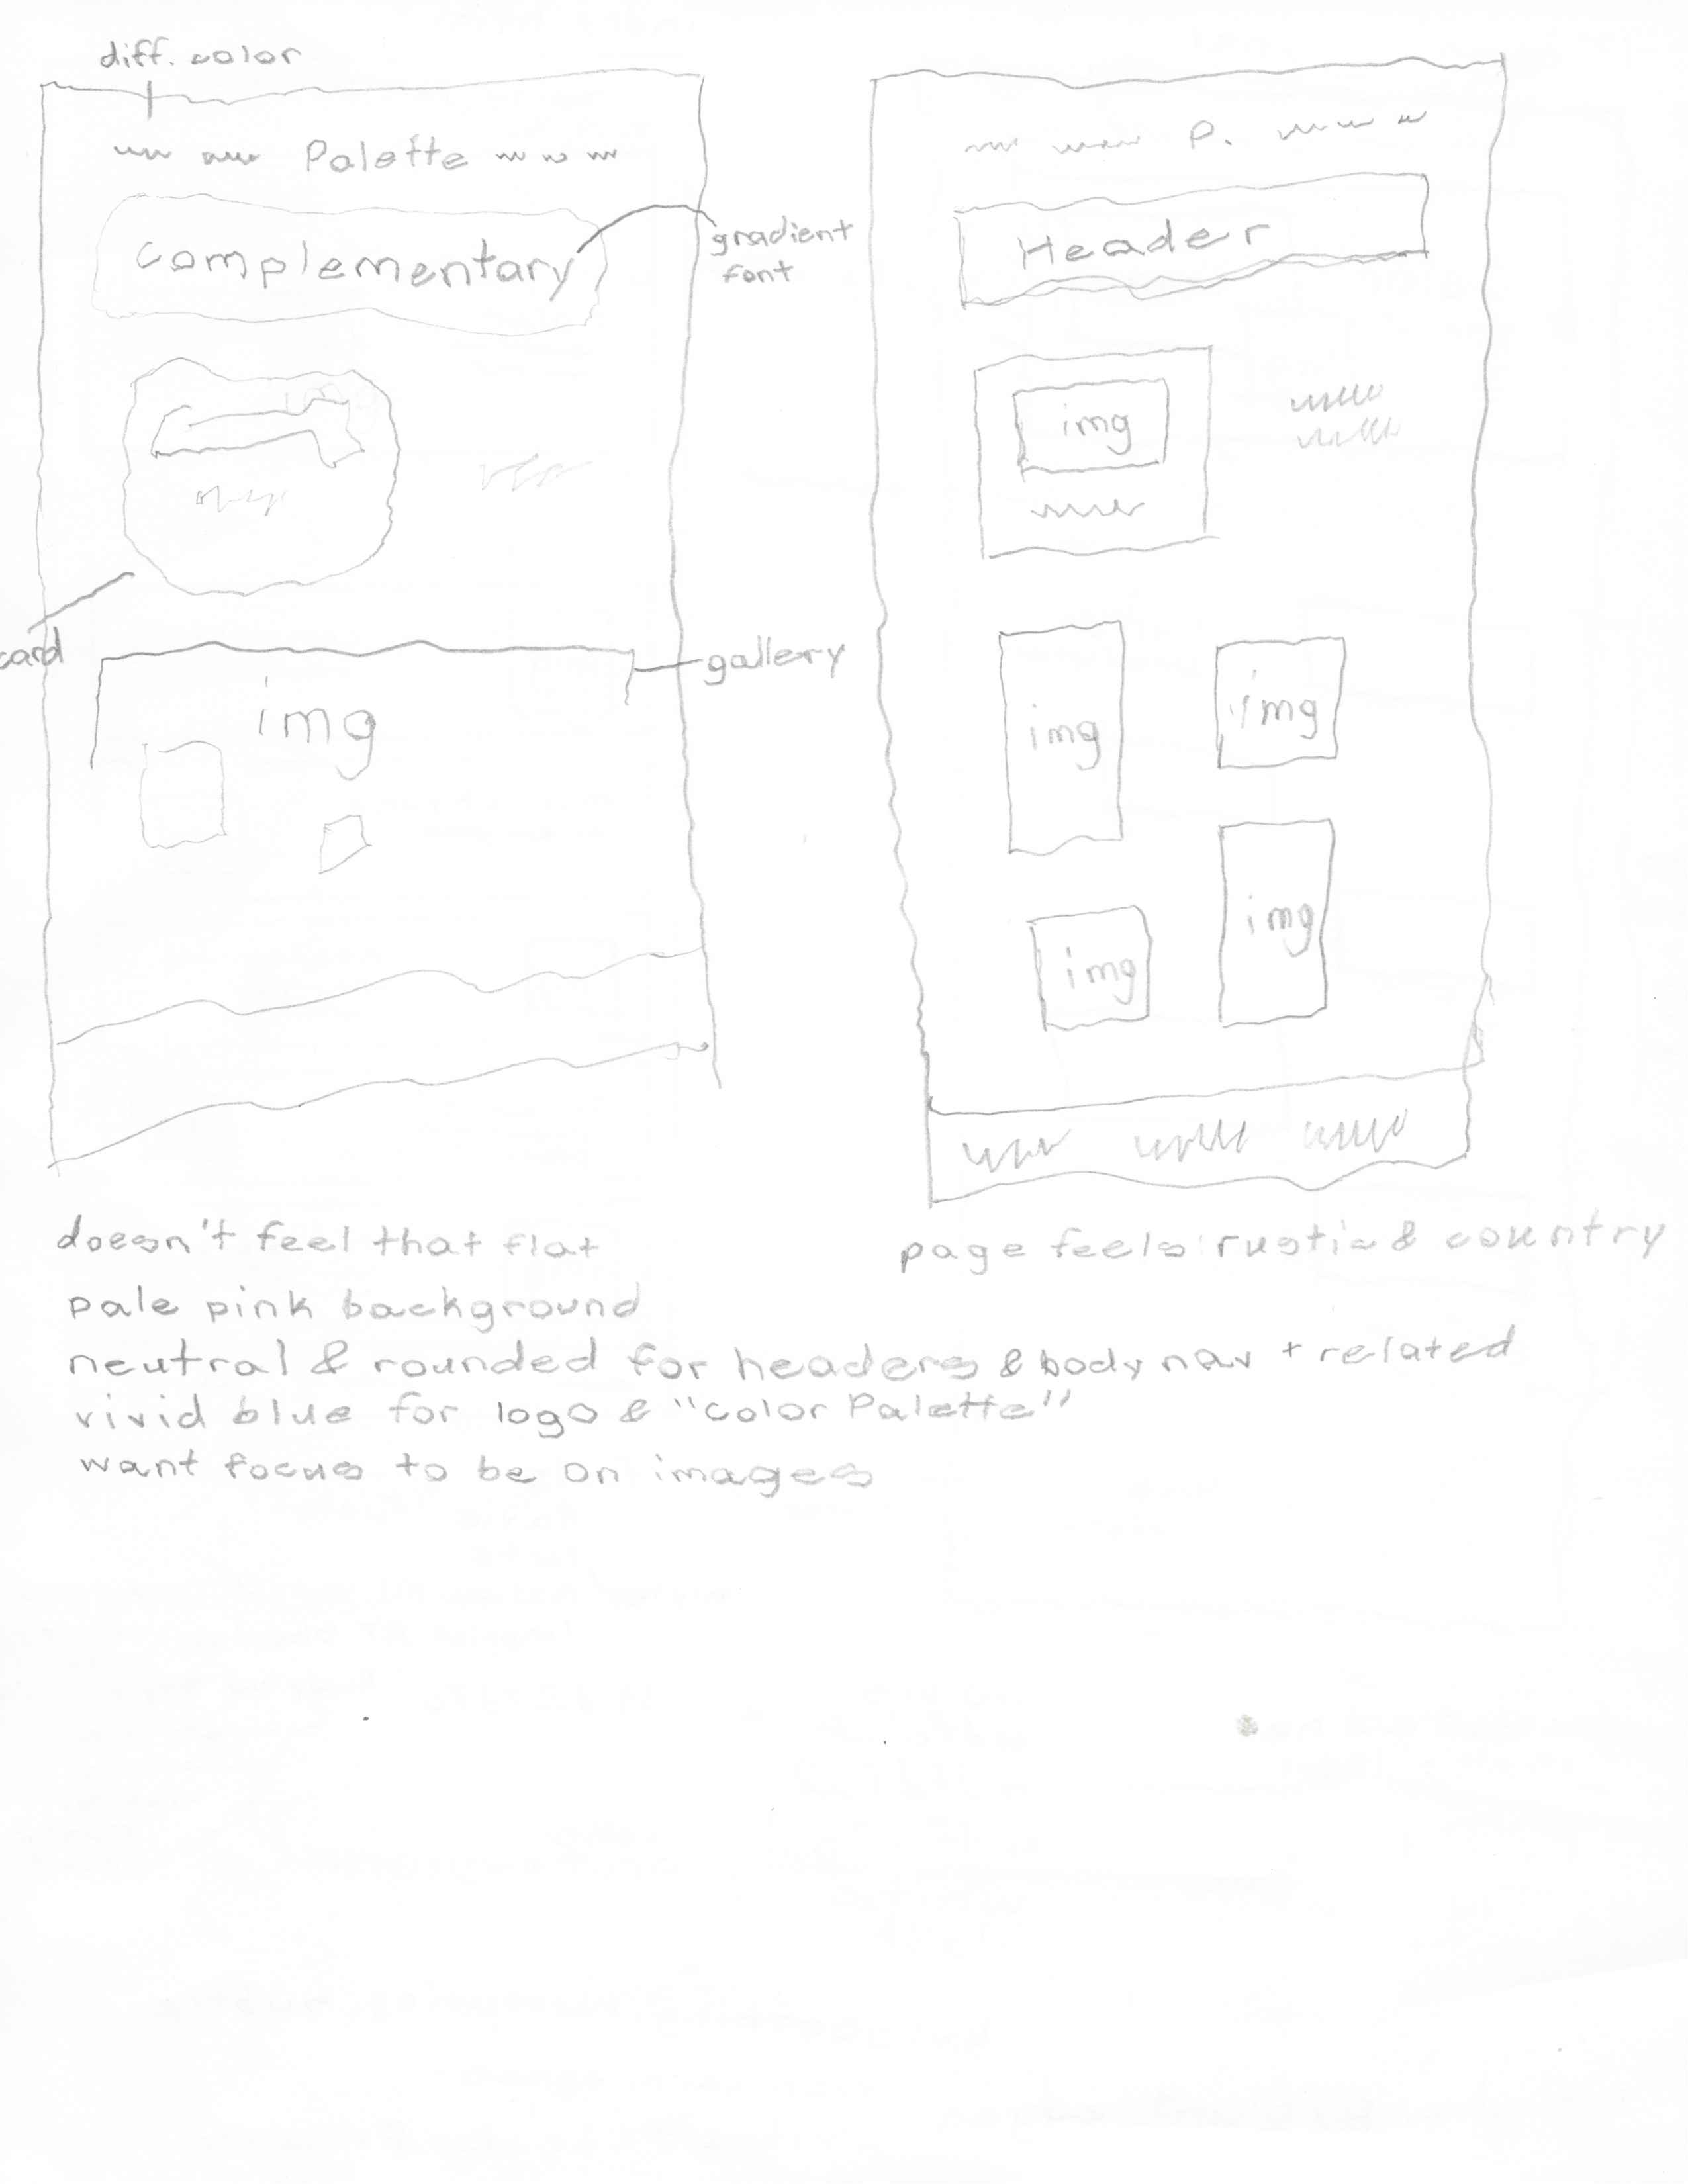 diff. color
Palette
Complementary
gradient
font
card
gallery
img
P.
Header
img
img
img
img
img
doesn't feel that flat
pale pink background
neutral & rounded for headers & body nav + related
vivid blue for logo & "Color Palette"
want focus to be on images
page feels rustic & country